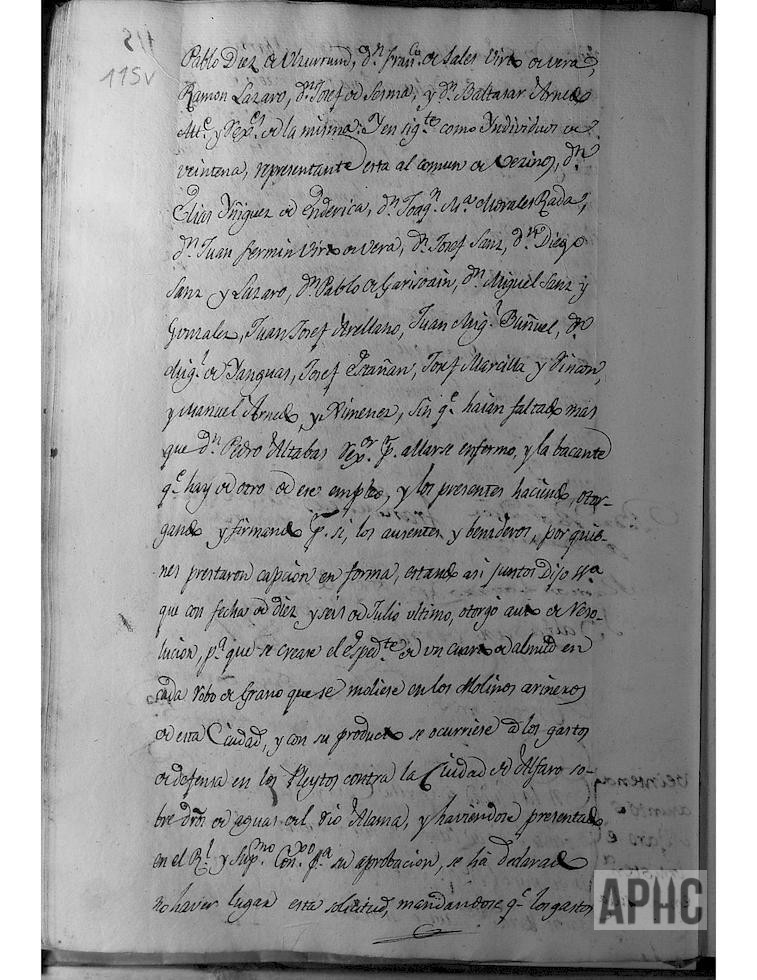 115v
Pablo Diez de Ulzurrun, dn. Franco. de Sales Virto de vera,
Ramon Lazaro, dn. Josef de Sesma, y dn. Baltasar Arnedo
Alce. y Rexes. de la misma: Y en sigte. como Yndividuos de
veintena, representante esta al comun de vezinos, dn.
Elias Yñiguez de Enderica, dn. Joaqn. Ma. Morales Rada,
dn. Juan fermin Virto de vera, dn. Josef Sanz, dn. Diego
Sanz y Lazaro, dn. Pablo de Garisoain, dn. Miguel Sanz y
Gonzalez, Juan Josef Arellano, Juan Migl. Buñuel,
Migl. de Yanguas, Josef Marcilla y Rincon,
y Manuel Arnedo y Ximenez, sin qe. haian faltado mas
que dn. Pedro Altabas Rexor. p. allarse enfermo, y la bacante
qe. hay de otro de ese empleo, y los presentes haciendo, otor-
gando y firmando p. si, los ausentes y benideros, por quie-
nes prestaron capcion en forma, estando asi juntos Dijo
que con fecha de diez y seis de Julio ultimo, otorgó auto de Reso-
lucion, pa. que se crease el expedte. de un cuarto de almud en
cada Robo de Grano que se moliese en los Molinos arineros
de esta Ciudad, y con su producto se ocurriese a los gastos
de defensa en los Pleytos contra la Ciudad de Alfaro so-
bre dros de aguas del rio Alama, y haviendose presentado
en el Rl. y Supmo. Conxo. pa. su aprobacion, se ha declarado
no haver lugar esta solicitud, mandandose qe. los gastos
APHC